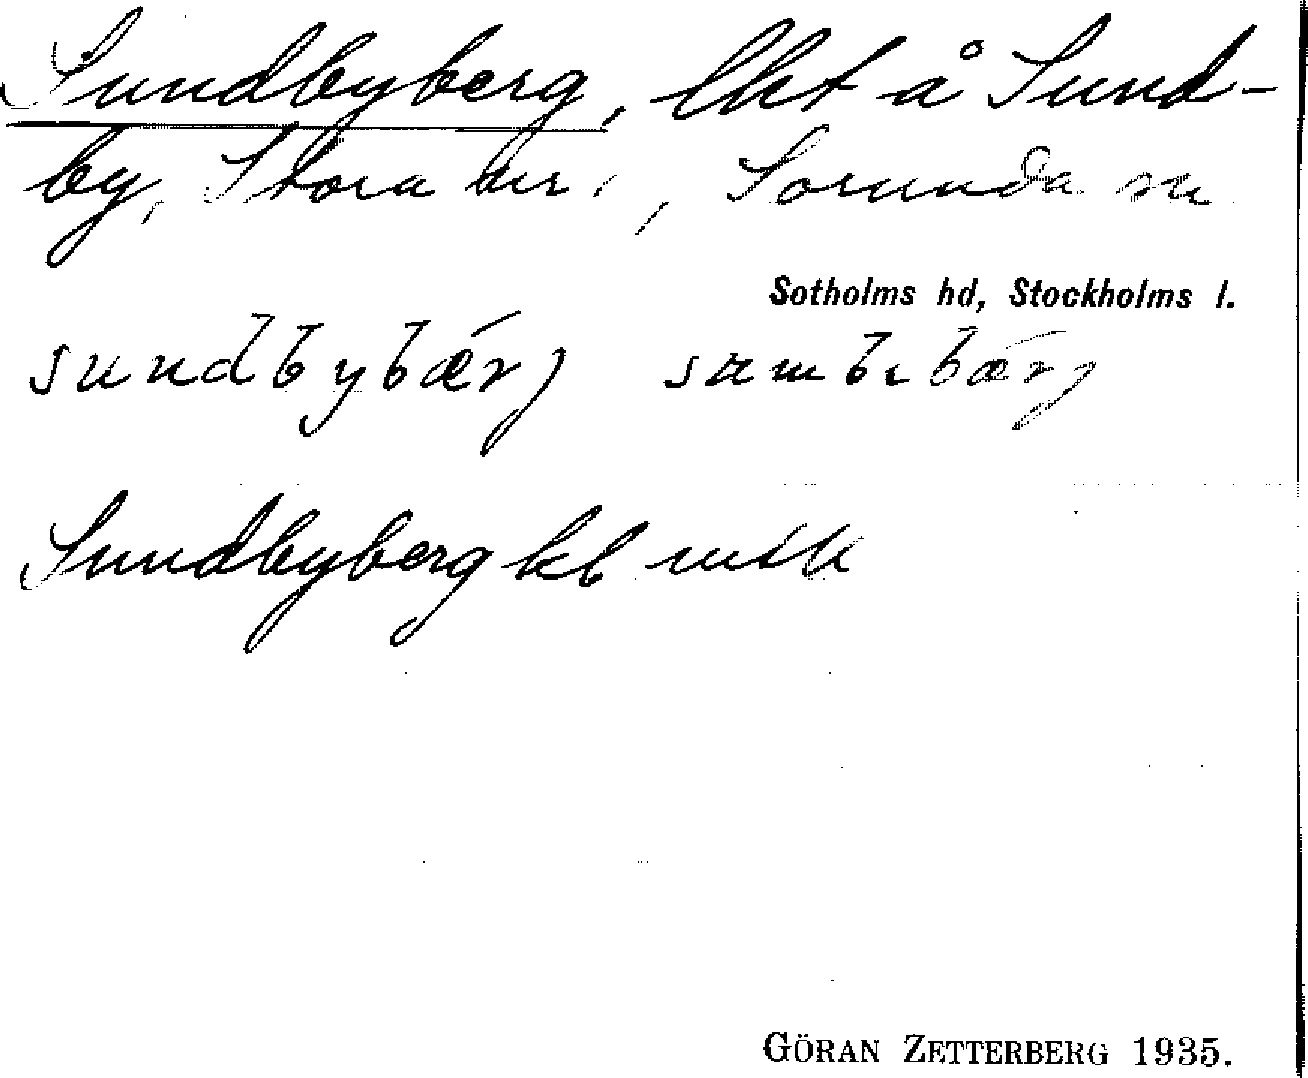 Sundbyberg, lht å Sund-
by, Stora , Sorunda sn
Sotholms hd, Stockholms l.
sundbybærj sumbibærj
Sundbyberg kb
GÖRAN ZETTERBERG 1935.